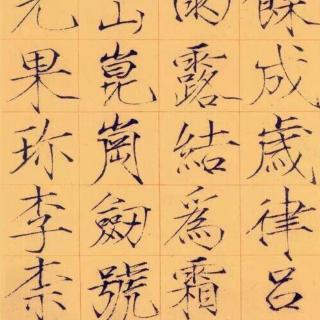 餘成歲律呂
雨露結爲霜
崑崗劒號
光果珍李柰